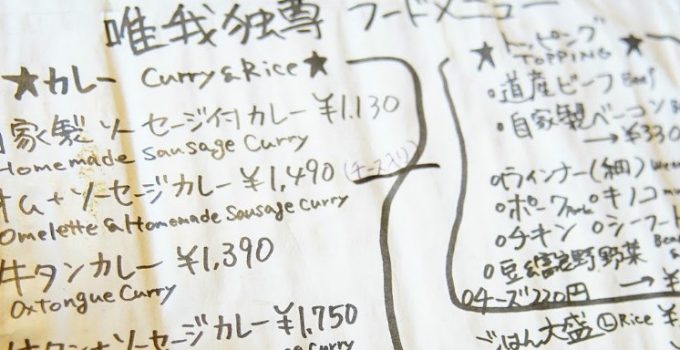 唯我独尊 フードメニュー
★カレー Curry & Rice★
自家製ソーセージ付カレー ¥1,130
Homemade Sausage Curry
オム+ソーセージカレー ¥1,490 (チーズ入り)
Omelette & Homemade Sausage Curry
牛タンカレー ¥1,390
Oxtongue Curry
ソーセージカレー ¥1,750
★トッピング
TOPPING
・道産ビーフ Beef
・自家製ベーコン
→¥330
・ウィンナー(細)
・ポーク Pork ・キノコ
・チキン ・シーフード
・豆 ・富良野野菜
→¥
・チーズ220円
ごはん大盛 Ⓛ Rice ¥